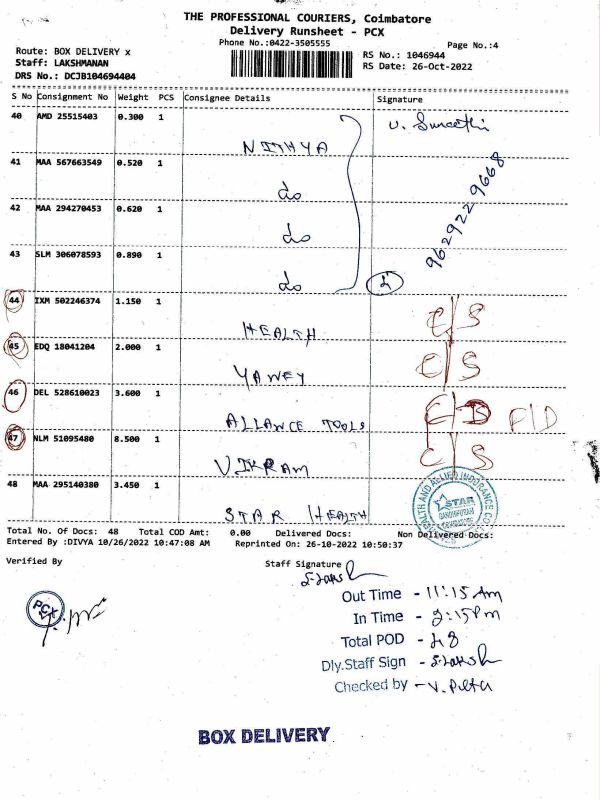 THE PROFESSIONAL COURIERS, Coimbatore
Delivery Runsheet - PCX
Phone No.:0422-3505555
Page No.:4
Route: BOX DELIVERY x
RS No.: 1046944
Staff: LAKSHMANAN
RS Date: 26-Oct-2022
DRS No.: DCJB104694404
S No Consignment No Weight PCS Consignee Details Signature
40 AMD 25515403 0.300 1
NITHYA
41 MAA 567663549 0.520 1
do
9629229668
42 MAA 294270453 0.620 1
do
43 SLM 306078593 0.890 1
do
44 IXM 502246374 1.150 1
HEALTH C/S
45 EDQ 18041204 2.000 1
C/S
46 DEL 528610023 3.600 1
ALLANCE TOOLS F/D
47 NLM 51095480 8.500 1
VIKRAM C/S
48 MAA 295140380 3.450 1
STAR HEALTH
STAR
Total No. Of Docs: 48 Total COD Amt: 0.00 Delivered Docs: Non Delivered Docs:
Entered By :DIVYA 10/26/2022 10:47:08 AM Reprinted On: 26-10-2022 10:50:37
Verified By Staff Signature
PCX
Out Time - 11:15 Am
In Time - 2:15 Pm
Total POD - 48
Dly.Staff Sign
Checked by
BOX DELIVERY